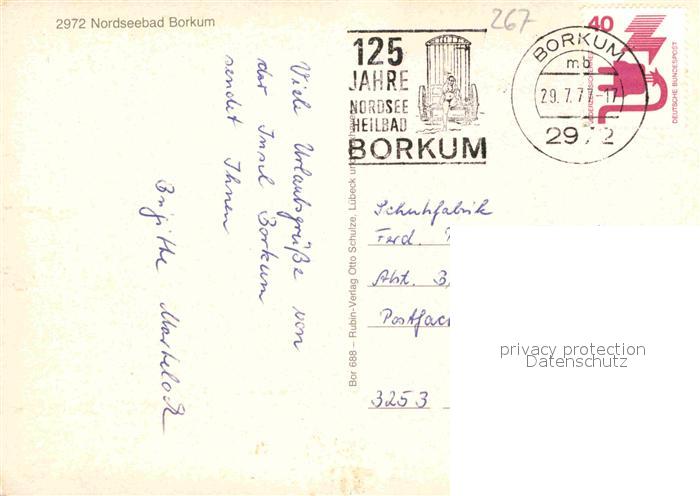 2972 Nordseebad Borkum
267
125
JAHRE
NORDSEE
HEILBAD
BORKUM
BORKUM
mb
29.7.77-17
2972
40
DEUTSCHE BUNDESPOST
Viele Urlaubsgrüße von
der Insel Borkum
sendet Ihnen
Brigitte
Bor 688 – Rubin-Verlag Otto Schulze, Lübeck und
Schuhfabrik
Ferd.
Abt. B
Postfac
3253
privacy protection
Datenschutz